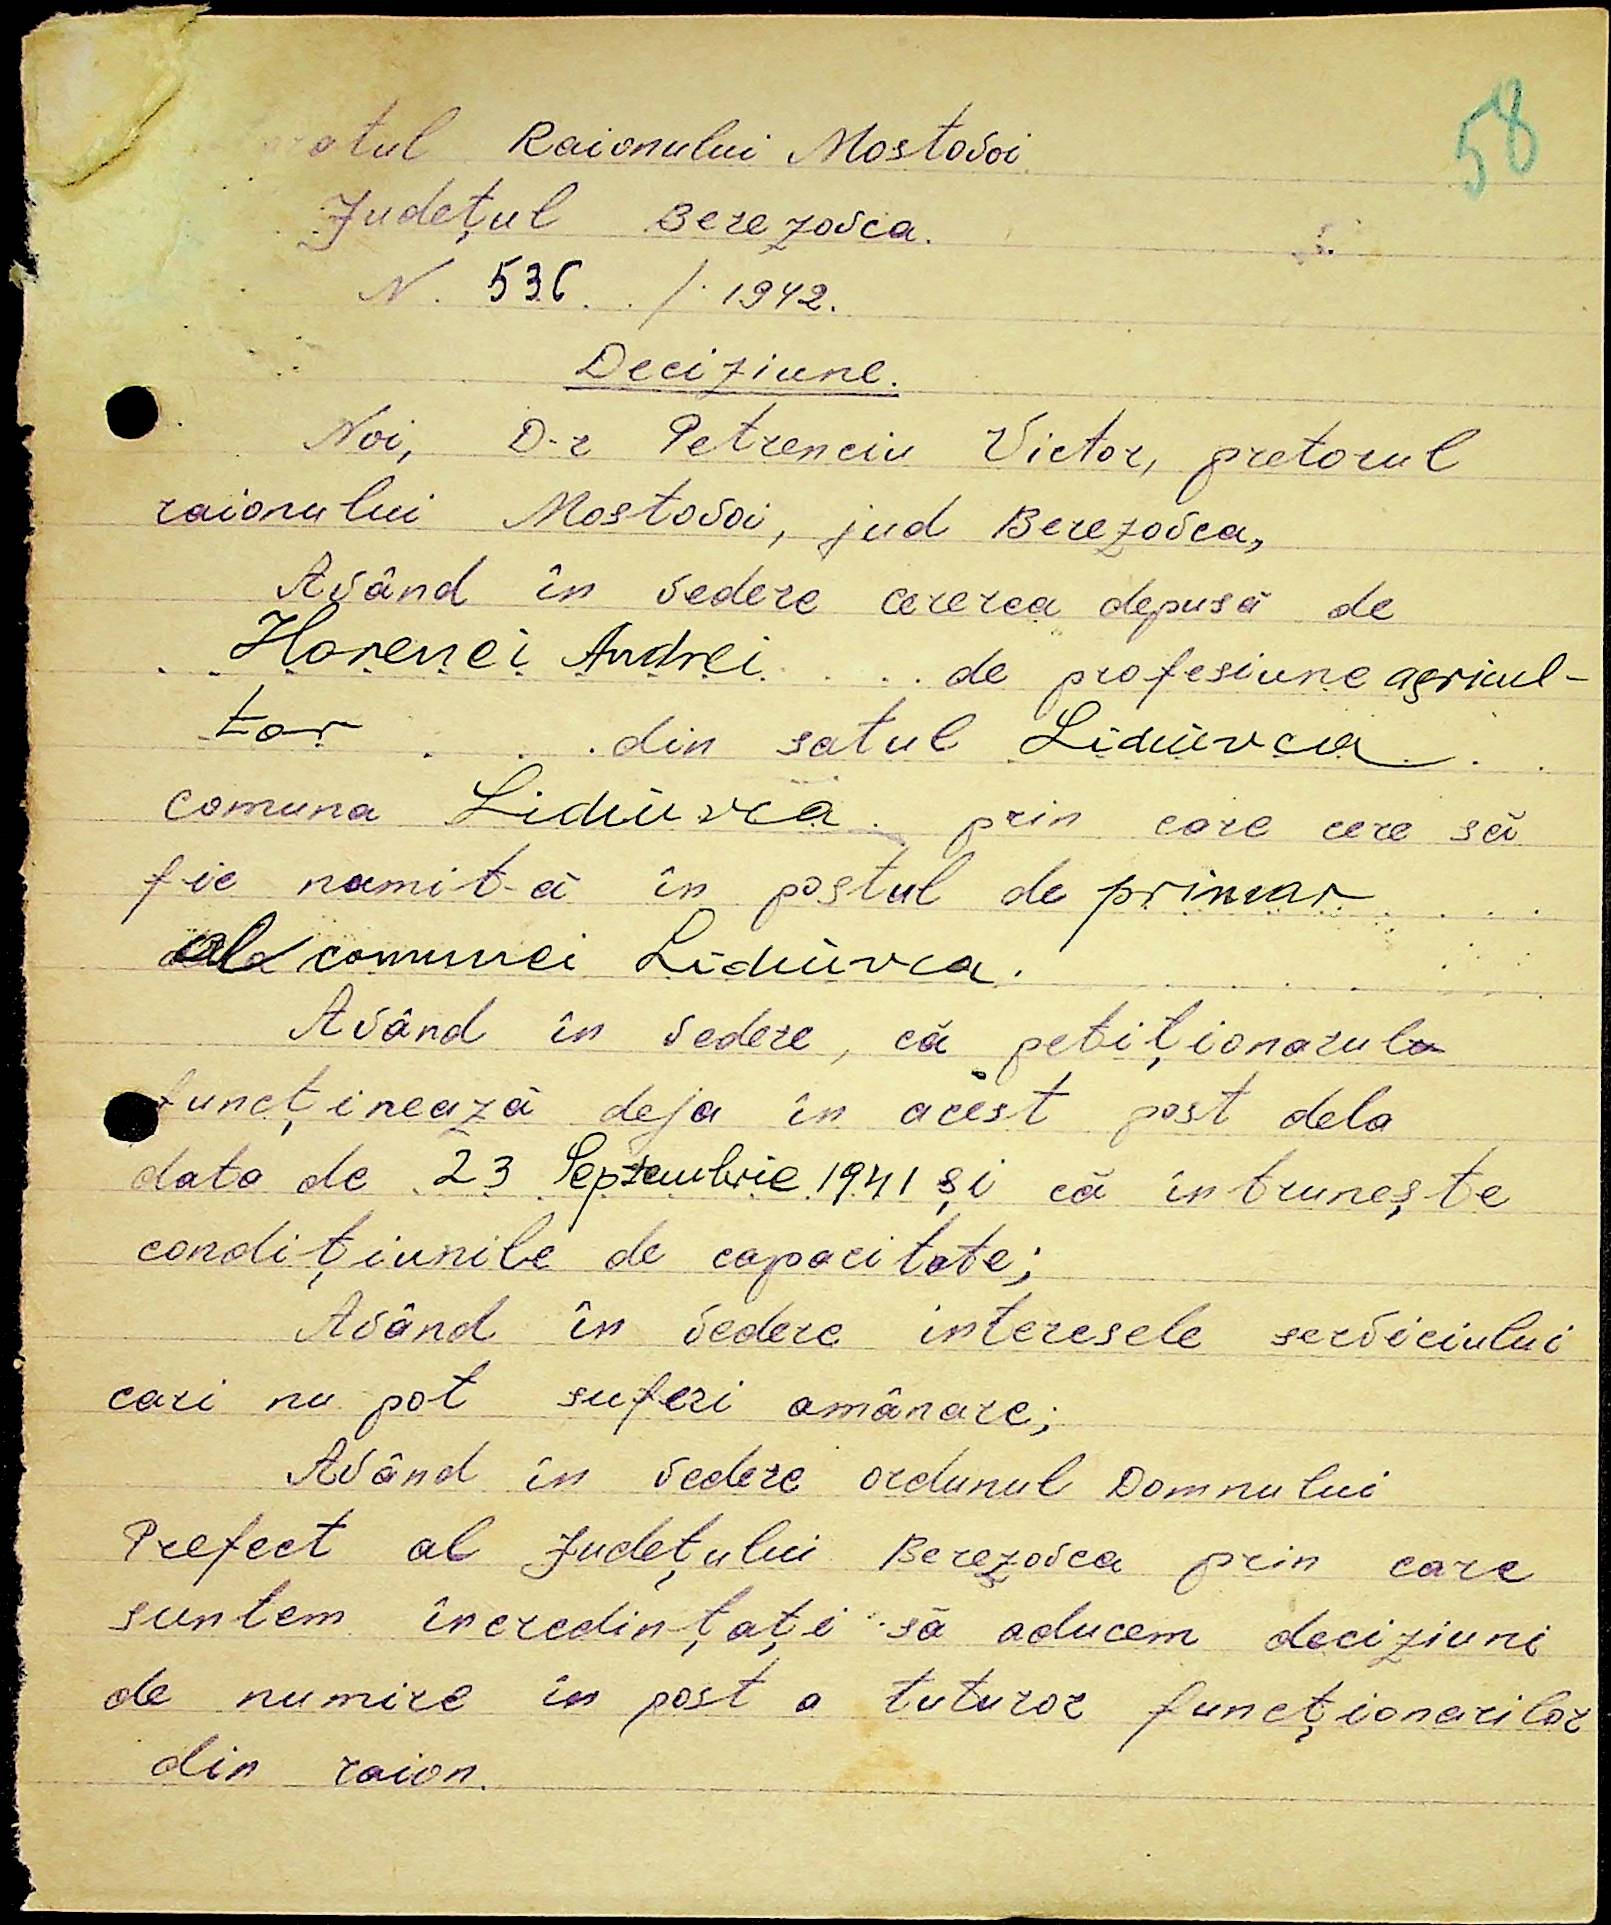 58
ratul Raionului Mostovoi
Județul Berezovca.
N. 536 / 1942.
Deciziune.
Noi, D-r Petrenciu Victor, pretorul
raionului Mostovoi, jud Berezovca,
Având în vedere cererea depusă de
Horenci Andrei de profesiune agricul-
tor din satul Lidiuvca
comuna Lidiuvca prin care cere să
fie numit-ă în postul de primar
al comunei Lidiuvca.
Având în vedere, că petiționarul
funcținează deja în acest post dela
data de 23 Septembrie 1941 și că întrunește
condițiunile de capacitate;
Având în vedere interesele serviciului
cari nu pot suferi amânare;
Având în vedere ordunul Domnului
Prefect al Județului Berezovca prin care
suntem încredințați să aducem deciziuni
de numire în post a tuturor funcționarilor
din raion.